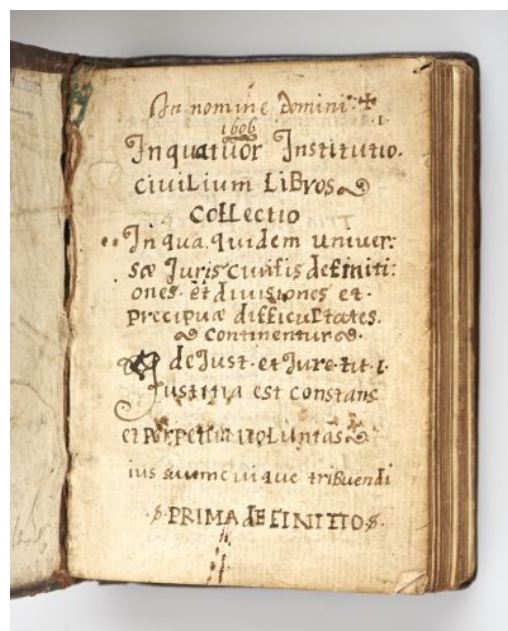 In nomine Domini ✝
1.
1606
In quatuor Institutio.
civilium Libros
Collectio
In qua quidem univer:
sæ Juris civilis definiti:
ones. et divisiones et.
precipuæ difficultates.
continentur.
de Just. et Jure tit. 1.
Justitia est constans
et perpetua voluntas
ius suum cuique tribuendi
.S. PRIMA dEFINITIO .S.